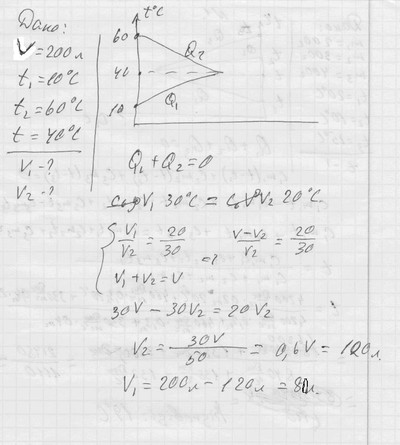 Дано:
V = 200 л
t₁ = 10°C
t₂ = 60°C
t = 40°C
V₁ - ?
V₂ - ?
t°C
60
40
10
Q₂
Q₁
Q₁ + Q₂ = 0
cρV₁ 30°C = cρV₂ 20°C
V₁/V₂ = 20/30 => V-V₂/V₂ = 20/30
V₁ + V₂ = V
30V - 30V₂ = 20V₂
V₂ = 30V/50 = 0,6V = 120л.
V₁ = 200л - 120л = 80л.